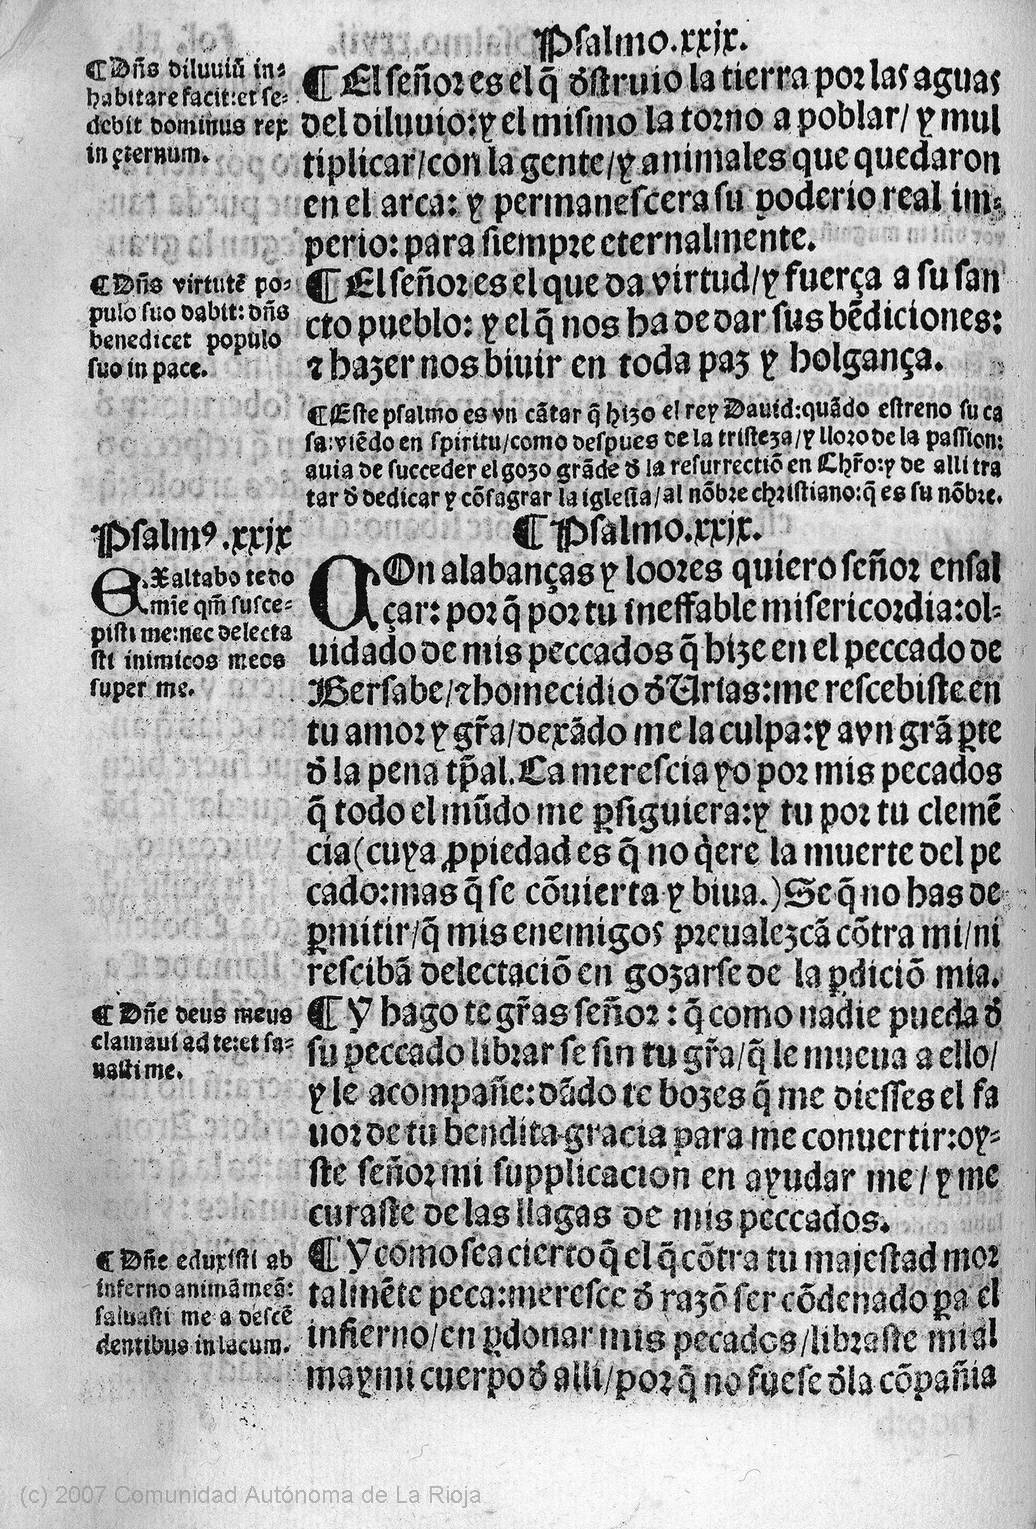 Psalmo.xxix.
¶ Dñs diluuiū in-
habitare facit: et se-
debit dominus rex
in çternum.
¶ El señor es el q̄ destruio la tierra por las aguas
del diluuio: y el mismo la torno a poblar/ y mul
tiplicar/con la gente/y animales que quedaron
en el arca: y permanescera su poderio real im-
perio: para siempre eternalmente.
¶ Dñs virtutē po-
pulo suo dabit: dñs
benedicet populo
suo in pace.
¶ El señor es el que da virtud/y fuerça a su san
cto pueblo: y el q̄ nos ha de dar sus bēdiciones:
⁊ hazer nos biuir en toda paz y holgança.
¶ Este psalmo es vn cātar q̄ hizo el rey Dauid: quādo estreno su ca
sa: viēdo en spiritu/como despues de la tristeza/y lloro de la passion:
auia de succeder el gozo grāde đ la resurrectiō en Chr̄o: y de alli tra
tar đ dedicar y cōsagrar la iglesia/al nōbre christiano: q̄ es su nōbre.
Psalmꝰ.xxix
¶ Psalmo.xxix.
EXaltabo te do
mīe qm̄ susce-
pisti me: nec delecta
sti inimicos meos
super me.
COn alabanças y loores quiero señor ensal
çar: por q̄ por tu ineffable misericordia: ol-
uidado de mis peccados q̄ hize en el peccado de
Bersabe/⁊ homecidio đ Urias: me rescebiste en
tu amor y gr̄a/dexādo me la culpa: y avn grā ꝑte
đ la pena tp̄al. Ca merescia yo por mis pecados
q̄ todo el mūdo me ꝑsiguiera: y tu por tu clemē
cia(cuya ꝓpiedad es q̄ no q̄ere la muerte del pe
cado: mas q̄ se cōuierta y biua.) Se q̄ no has de
ꝑmitir/q̄ mis enemigos preualezcā cōtra mi/ni
rescibā delectaciō en gozarse de la ꝑdiciō mia.
¶ Dñe deus meus
clamaui ad te: et sa-
nasti me.
¶ Y hago te gr̄as señor: q̄ como nadie pueda đ
su peccado librar se sin tu gr̄a/q̄ le mueua a ello/
y le acompañe: dādo te bozes q̄ me diesses el fa
uor de tu bendita gracia para me conuertir: oy-
ste señor mi supplicacion en ayudar me/ y me
curaste de las llagas de mis peccados.
¶ Dñe eduxisti ab
inferno animā meā:
saluasti me a descē
dentibus in lacum.
¶ Y como sea cierto q̄ el q̄ cōtra tu majestad mor
talmēte peca: meresce đ razō ser cōdenado ꝑa el
infierno/en ꝑdonar mis pecados/libraste mi al
ma y mi cuerpo đ alli/por q̄ no fuese đla cōpañia
(c) 2007 Comunidad Autónoma de La Rioja